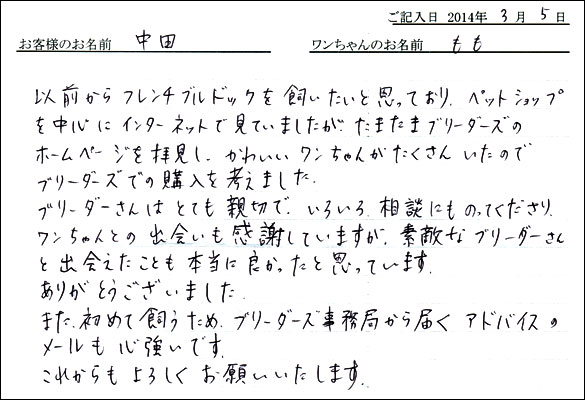 ご記入日 2014年 3月 5日
お客様のお名前 中田 ワンちゃんのお名前 もも
以前からフレンチブルドックを飼いたいと思っており、ペットショップ
を中心にインターネットで見ていましたが、たまたまブリーダーズの
ホームページを拝見し、かわいいワンちゃんがたくさんいたので
ブリーダーズでの購入を考えました。
ブリーダーさんはとても親切で、いろいろ相談にものってくださり、
ワンちゃんとの出会いも感謝していますが、素敵なブリーダーさん
と出会えたことも本当に良かったと思っています。
ありがとうございました。
また、初めて飼うため、ブリーダーズ事務局から届くアドバイスの
メールも心強いです。
これからもよろしくお願いいたします。